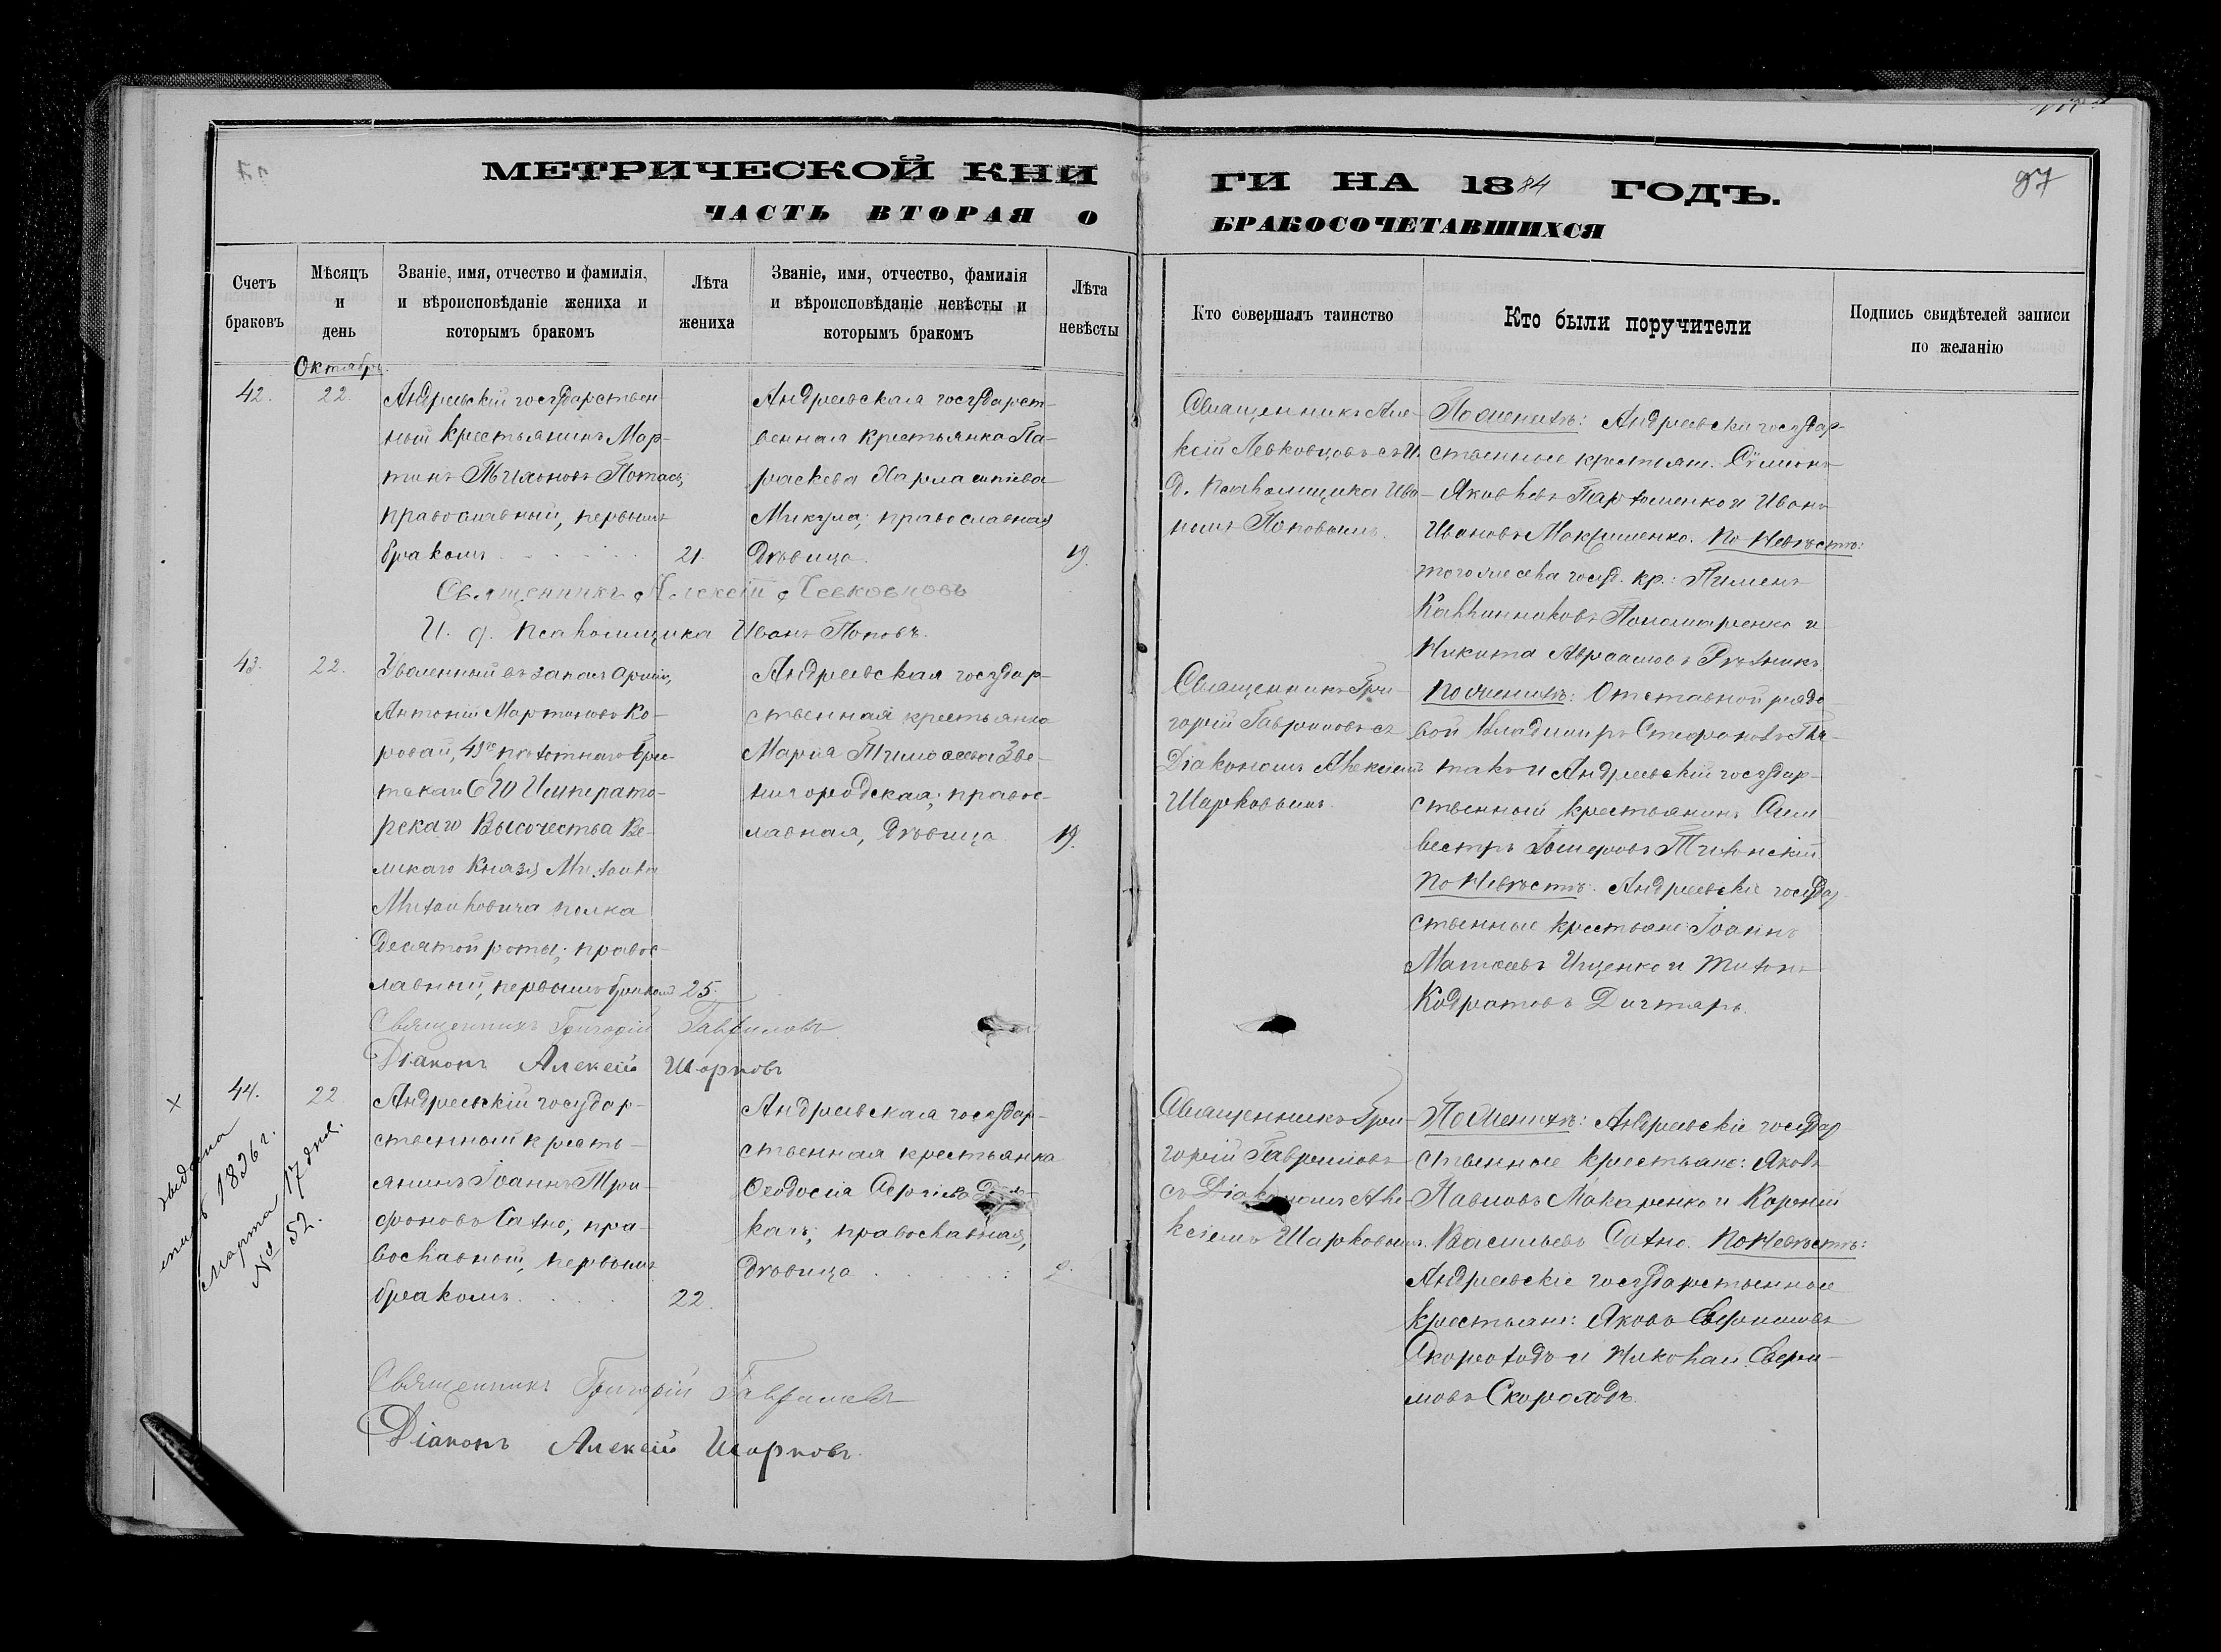 97
МЕТРИЧЕСКОЙ КНИ
ГИ НА 1884 ГОДЪ.
ЧАСТЬ ВТОРАЯ О
БРАКОСОЧЕТАВШИХСЯ
Счетъ браковъ
Мѣсяцъ и день
Званіе, имя, отчество и фамилія, и вѣроисповѣданіе жениха и которымъ бракомъ
Лѣта жениха
Званіе, имя, отчество, фамилія и вѣроисповѣданіе невѣсты и которымъ бракомъ
Лѣта невѣсты
Кто совершалъ таинство
Кто были поручители
Подпись свидѣтелей записи по желанію
Октябрь
42.
22.
Андреевскій государствен-
ный крестьянинъ Мар-
тинъ Тихоновъ Потась,
православный, первымъ
бракомъ
21.
Андреевская государст-
венная крестьянка Па-
раскева Харлампіева
Микула; православная
дѣвица
19.
Священникъ Але-
ксій Левковцовъ съ И.
д. псаломщика Ива-
номъ Поповымъ.
По женихѣ: Андреевскіе государ-
ственные крестьяне. Симеонъ
Яковлевъ Пархоменко и Иванъ
Ивановъ Максименко. По невѣстѣ:
того же села госуд. кр.: Пименъ
Каллиниковъ Пономаренко и
Никита Авраамовъ Рѣзникъ
Священникъ Алексій Левковцовъ
И. д. псаломщика Иванъ Поповъ.
43.
22.
Уволенный въ запасъ арміи,
Антоній Мартиновъ Ко-
ровай, 49го пѣхотнаго Бре-
стскаго Его Императо-
рскаго Высочества Ве-
ликаго Князя Михаила
Михаиловича полка
десятой роты; правос-
лавный, первымъ бракомъ
25.
Андреевская государ-
ственная крестьянка
Марія Тимоѳеева Зве-
нигородская; правос-
лавная, дѣвица
19.
Священникъ Гри-
горій Гавриловъ съ
Діакономъ Алексіемъ
Шарковымъ.
По женихѣ: Отставной рядо-
вой Владиміръ Стефановъ
и Андреевскій государ-
ственный крестьянинъ Сили-
вестръ
По невѣстѣ: Андреевскіе государ-
ственные крестьяне Іоаннъ
Матѳеевъ Ищенко и Тихонъ
Кодратовъ Дигтярь.
Священникъ Григорій Гавриловъ
Діаконъ Алексій Шарковъ
44.
22.
Андреевскій государ-
ственный кресть-
янинъ Іоаннъ Три-
фоновъ Сахно, пра-
вославный, первымъ
бракомъ
22.
Андреевская государ-
ственная крестьянка
Ѳеодосія Сергіева
православная,
дѣвица
Священникъ Гри-
горій Гавриловъ
съ Діакономъ Але-
ксіемъ Шарковымъ.
По женихѣ: Андреевскіе государ-
ственные крестьяне: Яковъ
Павловъ Макаренко и Корній
Васильевъ Сахно. По невѣстѣ:
Андреевскіе государственные
крестьяне: Яковъ
Скороходъ и Николай
Скороходъ.
Священникъ Григорій Гавриловъ
Діаконъ Алексій Шарковъ.
×
выдана
1896 г.
марта 17 дня.
№ 52.